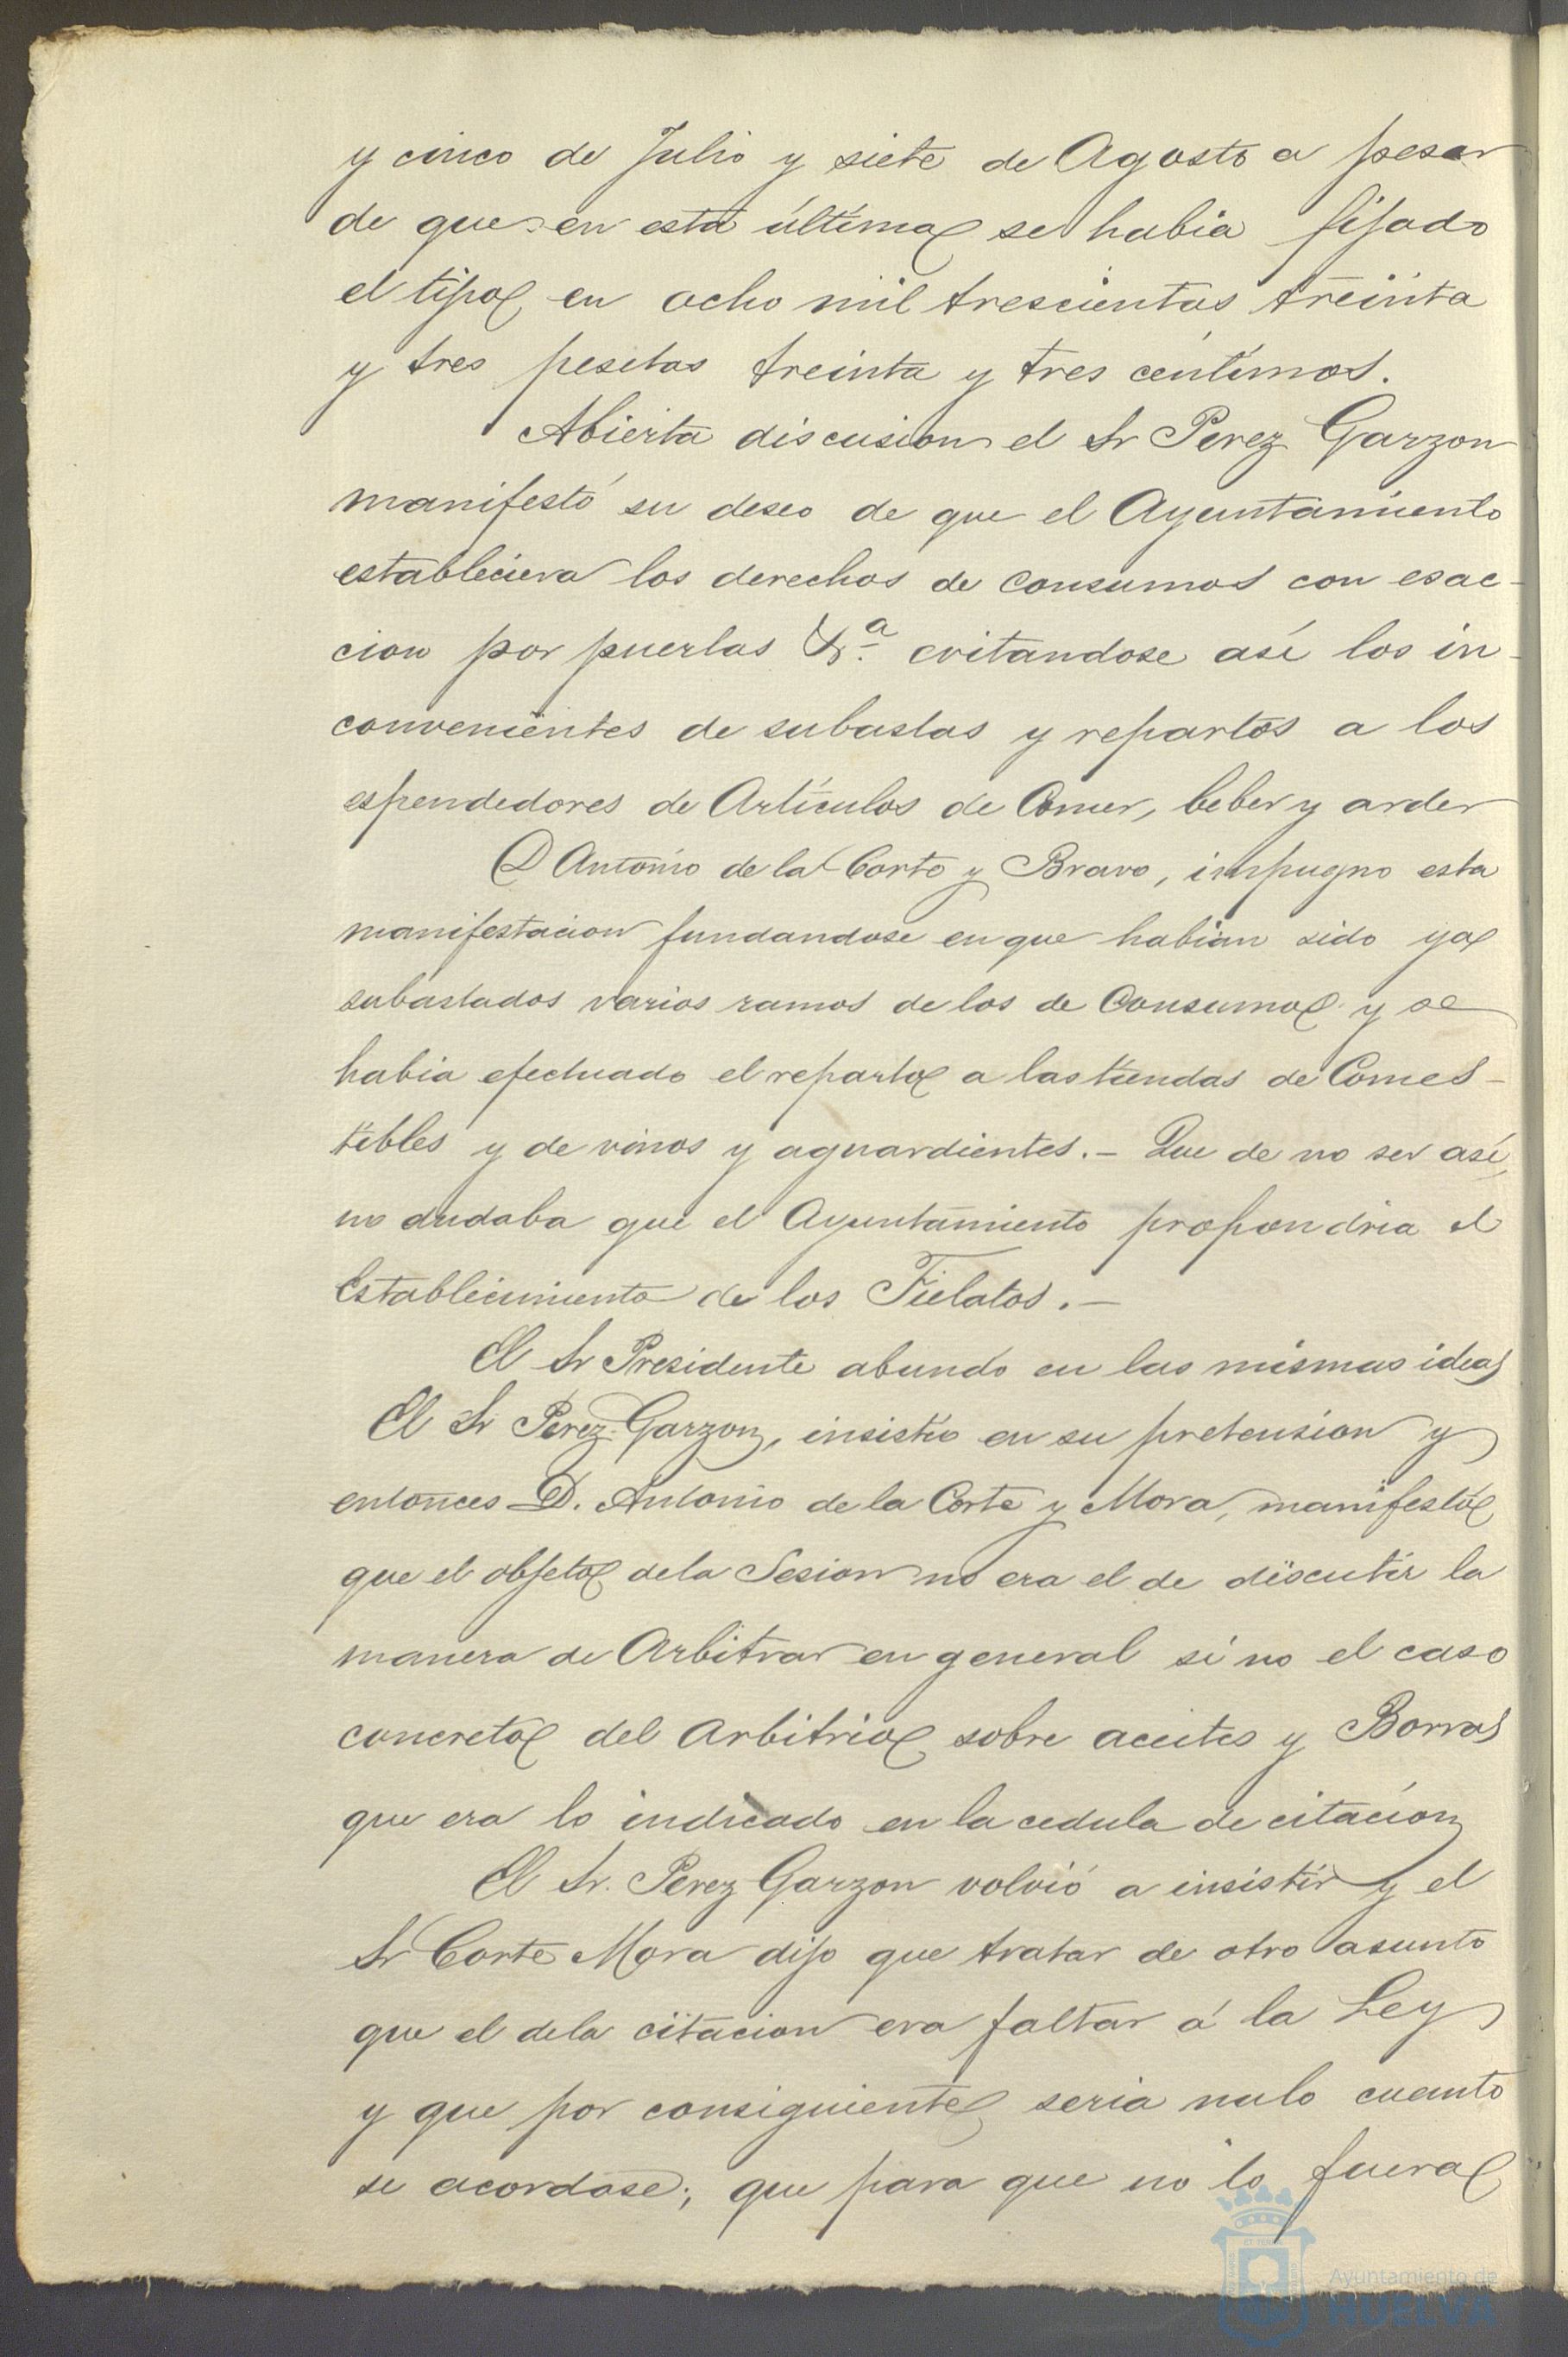 y cinco de Julio y siete de Agosto a pesar
de que en esta última se habia fijado
el tipo en ocho mil trescientas treinta
y tres pesetas treinta y tres centimos.
Abierta discusion el Sr Perez Garzon
manifestó su deseo de que el Ayuntamiento
estableciera los derechos de consumos con esac-
cion por puertas &.ª evitandose así los in-
convenientes de subastas y repartos a los
espendedores de Artículos de Comer, beber y arder
D Antonio de la Corte y Bravo, impugno esta
manifestacion fundandose en que habian sido ya
subastados varios ramos de los de Consumo y se
habia efectuado el reparto a las tiendas de Comes-
tibles y de vinos y aguardientes.- Que de no ser así,
no dudaba que el Ayuntamiento propondria el
Establecimiento de los Fielatos.-
El Sr Presidente abundo en las mismas ideas
El Sr Perez Garzon, insistio en su pretension y
entonces D. Antonio de la Corte y Mora, manifestó
que el objeto dela Sesion no era el de discutir la
manera de Arbitrar en general si no el caso
concreto del Arbitrio sobre aceites y Borras
que era lo indicado en la cedula de citación
El Sr. Perez Garzon volvió a insistir y el
Sr Corte Mora dijo que tratar de otro asunto
que el dela citacion era faltar á la Ley
y que por consiguiente seria nulo cuanto
se acordase; que para que no lo fuera
Ayuntamiento de
HUELVA